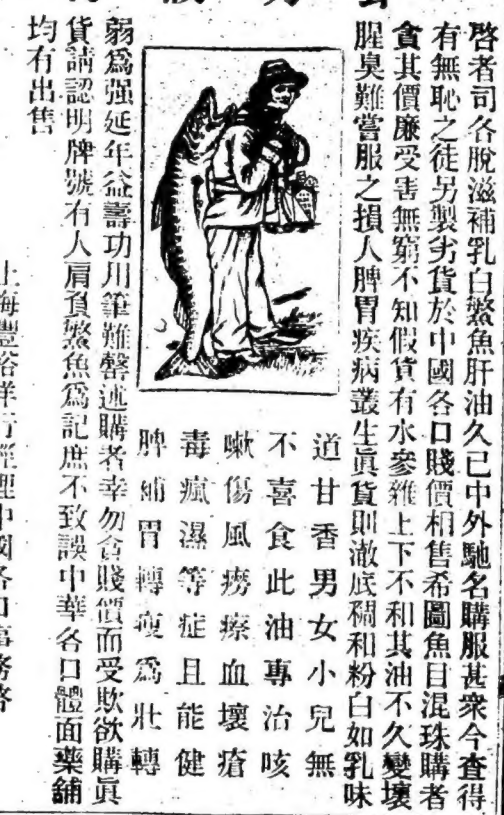 啓者司各脫滋補乳白鰵魚肝油久已中外馳名購服甚衆今查得
有無恥之徒另製劣貨於中國各口賤價相售希圖魚目混珠購者
貪其價廉受害無窮不知假貨有水參雜上下不和其油不久變壞
腥臭難嘗服之損人脾胃疾病叢生眞貨則澈底稠和粉白如乳味
道甘香男女小兒無
不喜食此油專治咳
嗽傷風癆瘵血壞瘡
毒瘋濕等症且能健
脾補胃轉瘦爲壯轉
弱爲强延年益壽功用筆難罄述購者幸勿貪賤價而受欺欲購眞
貨請認明牌號有人肩負鰵魚爲記庶不致誤中華各口體面藥舖
均有出售
上海豐裕洋行經理中國各口事務啓